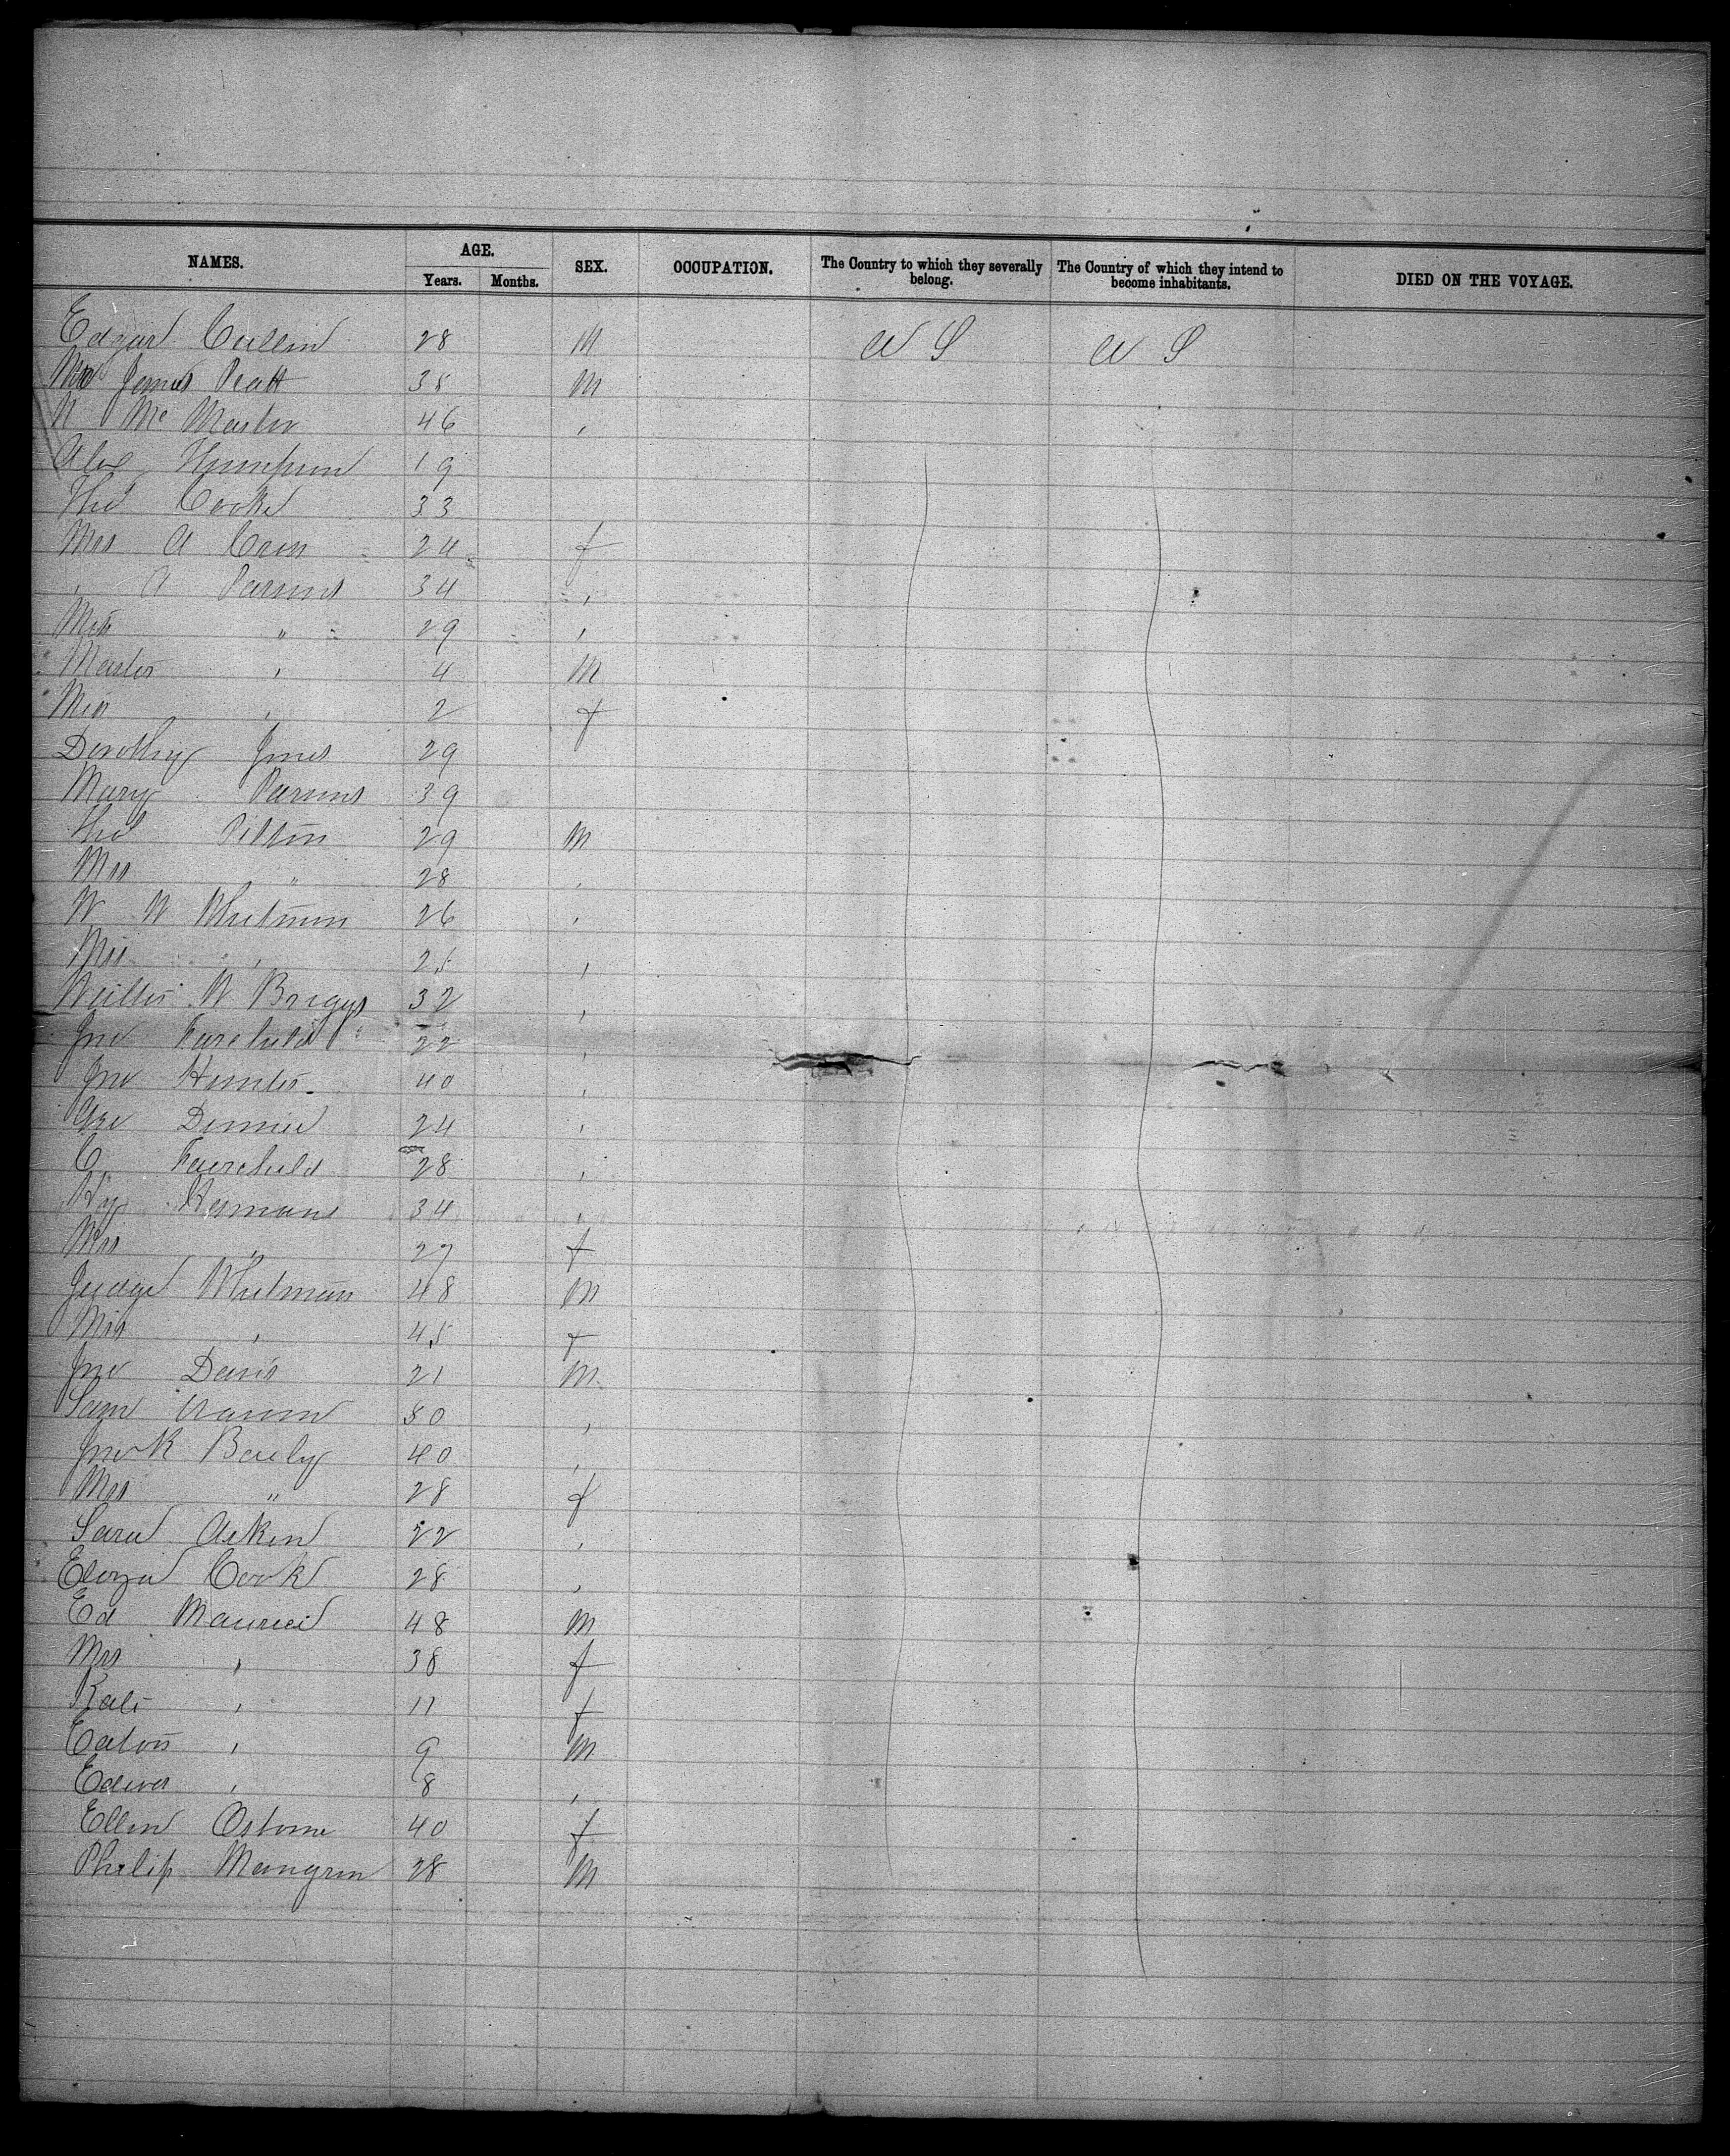 NAMES. AGE. SEX. OCCUPATION. The Country to which they severally belong. The Country of which they intend to become inhabitants. DIED ON THE VOYAGE.
Years. Months.
Edgar Cullen 28 M U S U S
James Pratt 38 M
Mc Master 46 ,
Alex Thompson 19
Tho Cooke 33
Mrs A Cross 24 f
, A Parsons 34 ,
" 29 ,
Master , 4 M
Miss , 2 f
Dorothy Jones 29
Mary Parsons 39
Tho Pilton 29 M
Mrs " 28 ,
W W Whitman 26 ,
Mrs , 25 ,
Walter W Briggs 32 ,
Jno Fairchild 22 ,
Jno Hunter 40 ,
Geo Dennie 24 ,
C Fairchild 28 ,
Hy 34 ,
Mrs " 27 f
Judge Whitman 48 M
Mrs , 45 f
Jno Davis 21 M
Sam 30 ,
Jno R Bailey 40 ,
Mrs " 28 f
Sara Aiken 22 ,
Eliza Cook 28 ,
Ed Maurice 48 M
Mrs , 38 f
Kate , 11 f
Eaton , 9 M
, 8 ,
Ellen Osborne 40 f
Philip 28 M